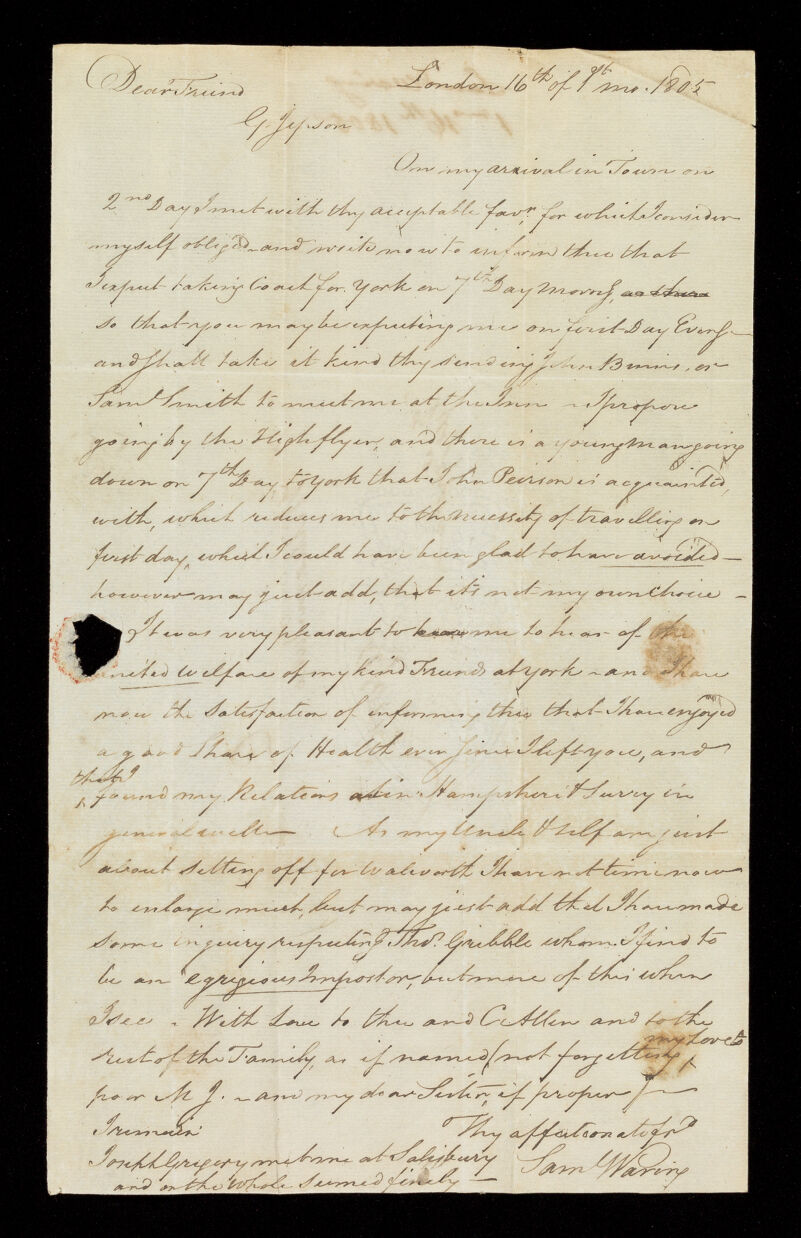 Dear Friend London 16th of 1st mo. 1805
G. Jepson
On my arrival in Town on
2nd Day I met with thy aceptable favr, for which I consider
myself obliged - and write now to inform thee that
I expect taking Coach for York on 7th Day Morng,
so that you may be expecting me on first Day Eveng -
and shall take it kind thy sending John Binns, or
Saml Smith to meet me at the Inn - I propose
going by the Highflyer, and there is a young Man going
down on 7th Day, to York that John Peirson is acquainted,
with, which reduces me to the necessity of travelling on
first day, which I could have been glad to have avoided -
however may just add, that it's not my own Choice -
It was very pleasant to me to hear of the
united welfare of my kind Friends at York - and I have
now the satisfaction of informing thee that I have enjoyed
a good share of Health ever since I left you, and
that I
found my Relations in Hampshire & Surry in
general well - As my Uncle & self am just
about setting off for Walworth I have not time now
to enlarge much, but may just add that I have made
some inquiry respecting Thos. Gribble whom I find to
be an egregious Impostor, but more of this when
I see - With Love to thee and C Allen and to the
my Love to
rest of the Family, as if named (not forgetting
poor M J. - and my dear Sister, if proper) -
I remain Thy affectionate frd
Joseph Gregory met me at Salisbury Saml Waring
and on the whole seemed finely -